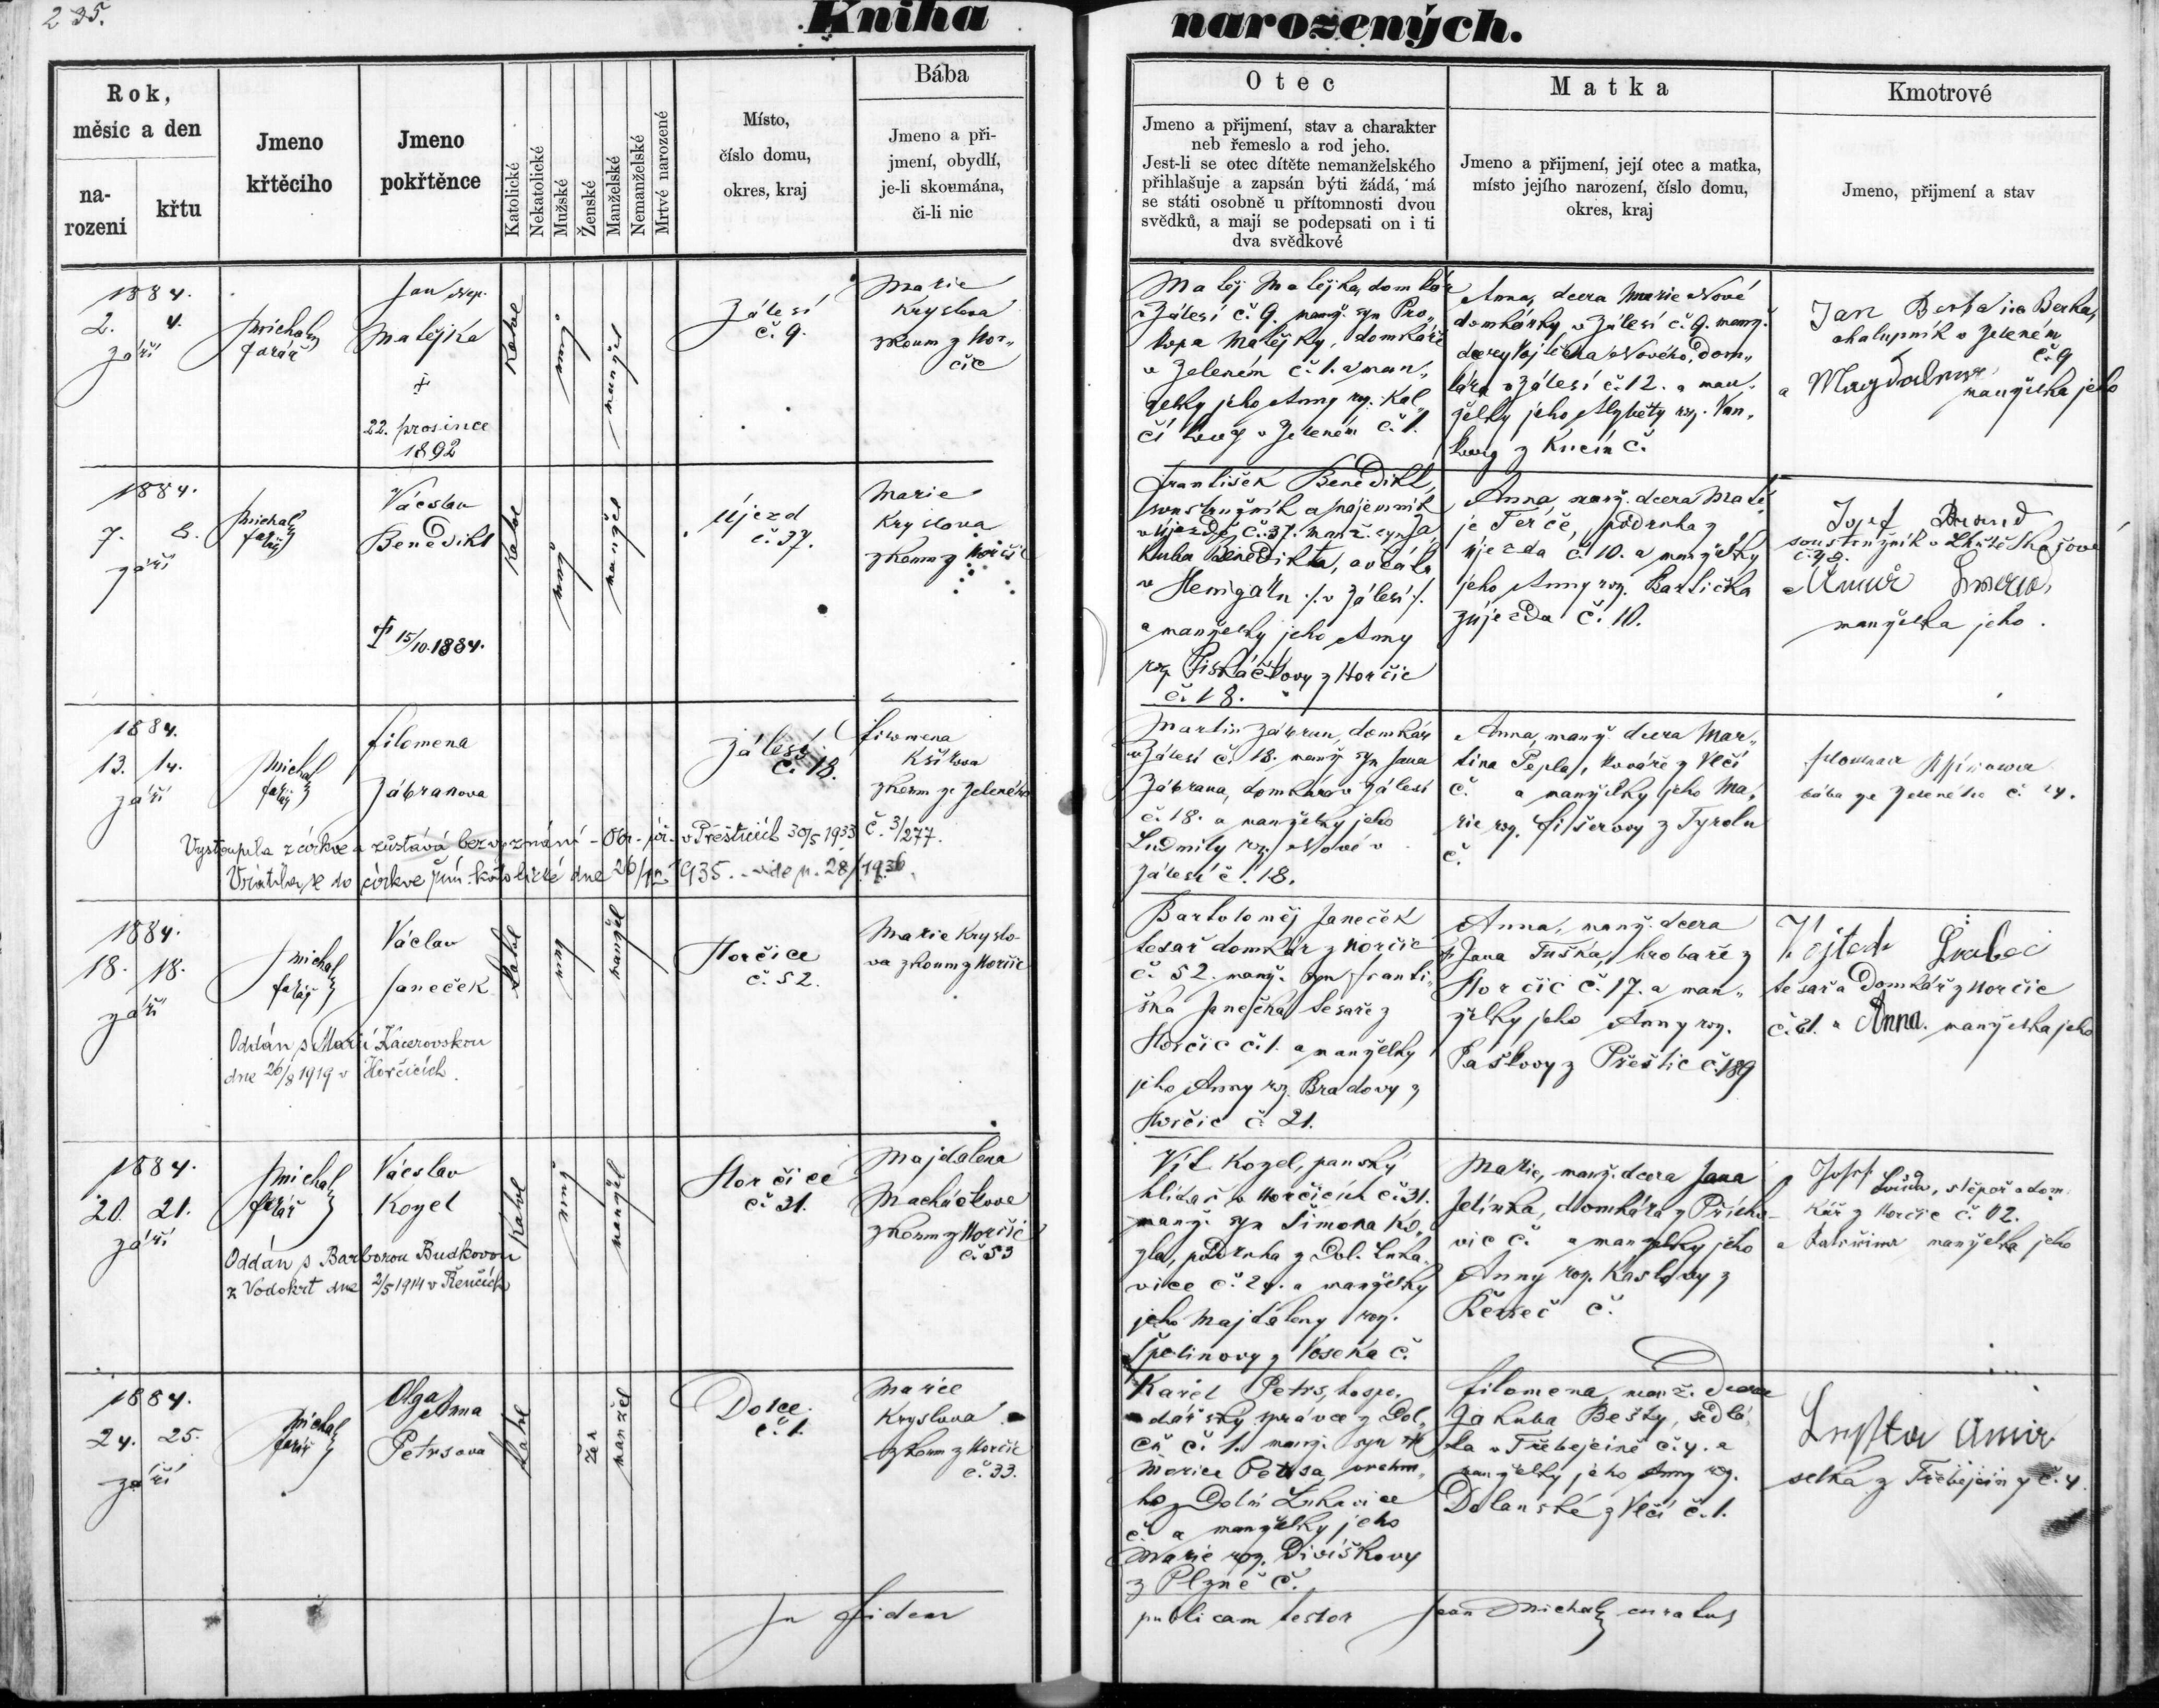 235.
Kniha narozených.
Rok,
měsíc a den
na-
rození
křtu
Jmeno
křtěcího
Jmeno
pokřtěnce
Katolické
Nekatolické
Mužské
Ženské
Manželské
Nemanželské
Mrtvé narozené
Místo,
číslo domu,
okres, kraj
Bába
Jmeno a při-
jmení, obydlí,
je-li skoumána,
či-li nic
Otec
Jmeno a přijmení, stav a charakter
neb řemeslo a rod jeho.
Jest-li se otec dítěte nemanželského
přihlašuje a zapsán býti žádá, má
se státi osobně u přítomnosti dvou
svědků, a mají se podepsati on i ti
dva svědkové
Matka
Jmeno a přijmení, její otec a matka,
místo jejího narození, číslo domu,
okres, kraj
Kmotrové
Jmeno, přijmení a stav
1884.
2. 4.
září
Michal
farář
Jan Nep.
Matějka
†
22. prosince
1892
Katol
muž
manžel
Zálesí
č. 9.
Marie
Kryslova
zkoum z Hor„
čic
Matěj Matějka, domkář
v Zálesí č. 9. manž. syn Pro„
kopa Matějky, domkáře
v Zeleném č. 1. a man„
želky jeho Anny roz. Kal„
v Zeleném č. 1.
Anna, dcera Marie Nové
domkářky v Zálesí č. 9. manž.
dcery Vojtěcha Nového, dom„
káře v Zálesí č. 12. a man„
želky jeho Alžběty roz. Van„
z č.
Jan Berka
chalupník v Zeleném
č. 9
a Magdalena manželka jeho
1884.
7. 8.
září
Michal
farář
Václav
Benedikt
† 15/10. 1884.
Katol
muž
manžel
Újezd
č. 37.
Marie
Kryslova
zkoum z Horčic
František Benedikt,
soustružník a nájemník
v Újezdě č. 37. manž. syn Ja„
kuba Benedikta, ovčáka
v :/. v Zálesí :/.
a manželky jeho Anny
roz. Piskáčkovy z Horčic
č. 18.
Anna, manž. dcera Matě„
je Terče, podruha z
Újezda č. 10. a manželky
jeho Anny roz.
z Újezda č. 10.
Josef
soustružník v
č. 42.
a
manželka jeho.
1884.
13. 14.
září
Michal
farář
Filomena
Zábranova
Zálesí
č. 18.
Filomena
Kšírova
zkoum ze Zeleného
Vystoupila z církve a zůstává bez vyznání – Okr. pol. v Přešticích 30/5 1933 č. 3/277.
Vrátila se do církve řím. katolické dne 26/12 1935. – vide p. 28/1936.
Martin Zábran, domkář
v Zálesí č. 18. manž. syn Jana
Zábrana, domkáře v Zálesí
č. 18. a manželky jeho
Ludmily roz. Nové v
Zálesí č. 18.
Anna, manž. dcera Mar„
tina Pepla, kováře z Vlčí
č. a manželky jeho Ma„
rie roz. Fišerovy z Tyrolu
č.
Filomena
bába ze Zeleného č. 14.
1884.
18. 18.
září
Michal
farář
Václav
Janeček
Oddán s Marií Kacerovskou
dne 26/8 1919 v Horčicích.
Katol
muž
manžel
Horčice
č. 52.
Marie Kryslo-
va zkoum z Horčic
Bartoloměj Janeček
tesař domkář z Horčic
č. 52. manž. syn Franti„
ška Janečka, tesaře z
Horčic č. 1. a manželky
jeho Anny roz. Bradovy z
Horčic č. 21.
Anna, manž. dcera
Jana Tuška, hrobaře z
Horčic č. 17. a man„
želky jeho Anny roz.
Paškovy z Přeštic č. 189
Vojtěch
tesař a Domkář z Horčic
č. 21. a Anna. manželka jeho
1884.
20. 21.
září
Michal
farář
Václav
Kozel
Oddán s Barborou Budkovou
z Vodokrt dne 2/5 1914 v Řenčích
Katol
muž
manžel
Horčice
č. 31.
Majdalena
Macháčkova
zkoum z Horčic
č. 53
Vít Kozel, panský
hlídač v Horčicích č. 31.
manž. syn Šimona Ko„
zla, podruha z Dol. Luka„
vice č. 24. a manželky
jeho Majdaleny roz.
z Voseka č.
Marie, manž. dcera Jana
Jelínka, domkáře z Přícho-
vic č. a manželky jeho
Anny roz. Kaslovy z
Řeneč č.
Josef dom-
kář z Horčic č. 12.
a Kateřina manželka jeho
1884.
24. 25.
září
Michal
farář
Olga
Anna
Petrsova
Katol
Žen
manžel
Dolce.
č. 1.
Marie
Kryslova
zkoum z Horčic
č. 33.
Karel Petrs, hospo„
dářský správce z Dol„
ců č. 1. manž. syn
Morice Petrsa,
z Dolní Lukavice
č. a manželky jeho
Marie roz. Divíškovy
z Plzně č.
Filomena, manž. Dcera
Jakuba Bešty, sedlá„
ka v Třebejčině č. 4. a
manželky jeho Anny roz.
Dolanské z Vlčí č. 1.
Anna
selka z Třebejčiny č. 4
In fidem publicam testor Joan Michal curatus